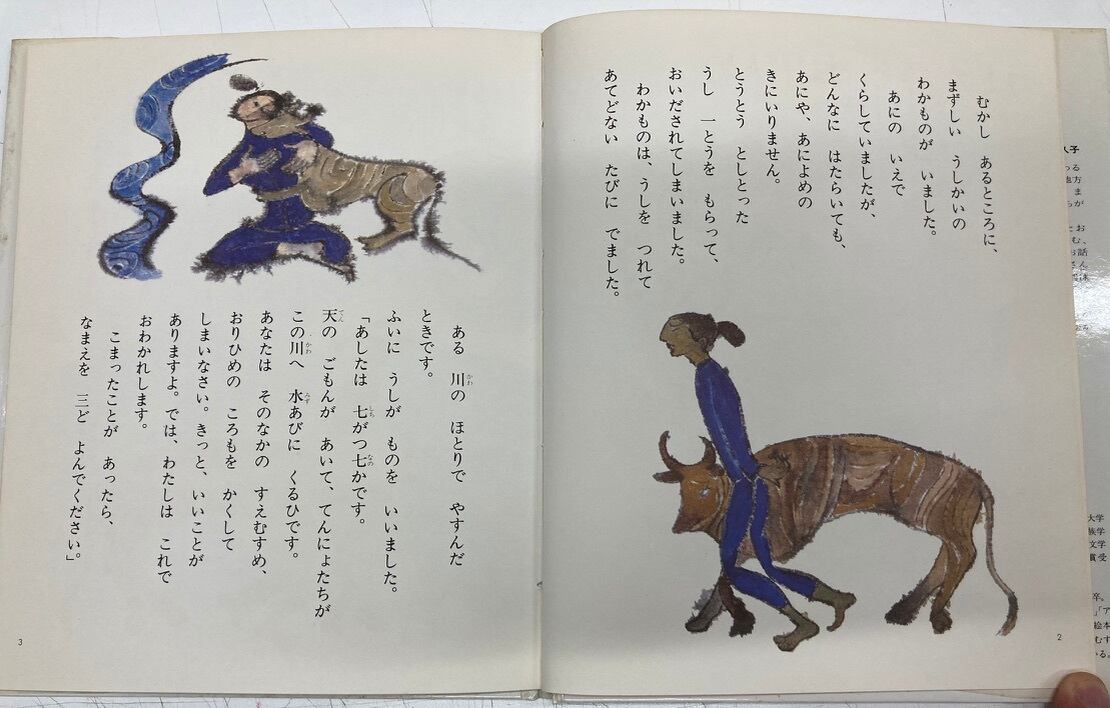 むかし　あるところに、
まずしい　うしかいの
わかものが　いました。
あにの　いえで
くらしていましたが、
どんなに　はたらいても、
あにや、あによめの
きにいりません。
とうとう　としとった
うし　一とうを　もらって、
おいだされてしまいました。
わかものは、うしを　つれて
あてどない　たびに　でました。
2
ある　川の　ほとりで　やすんだ
かわ
ときです。
ふいに　うしが　ものを　いいました。
「あしたは　七がつ七かです。
しち　なの
天の　ごもんが　あいて、てんにょたちが
てん
この川へ　水あびに　くるひです。
かわ　みず
あなたは　そのなかの　すえむすめ、
おりひめの　ころもを　かくして
しまいなさい。きっと、いいことが
ありますよ。では、わたしは　これで
おわかれします。
こまったことが　あったら、
なまえを　三ど　よんでください。」
3
大学
族学
文学
賞受
卒。
絵本